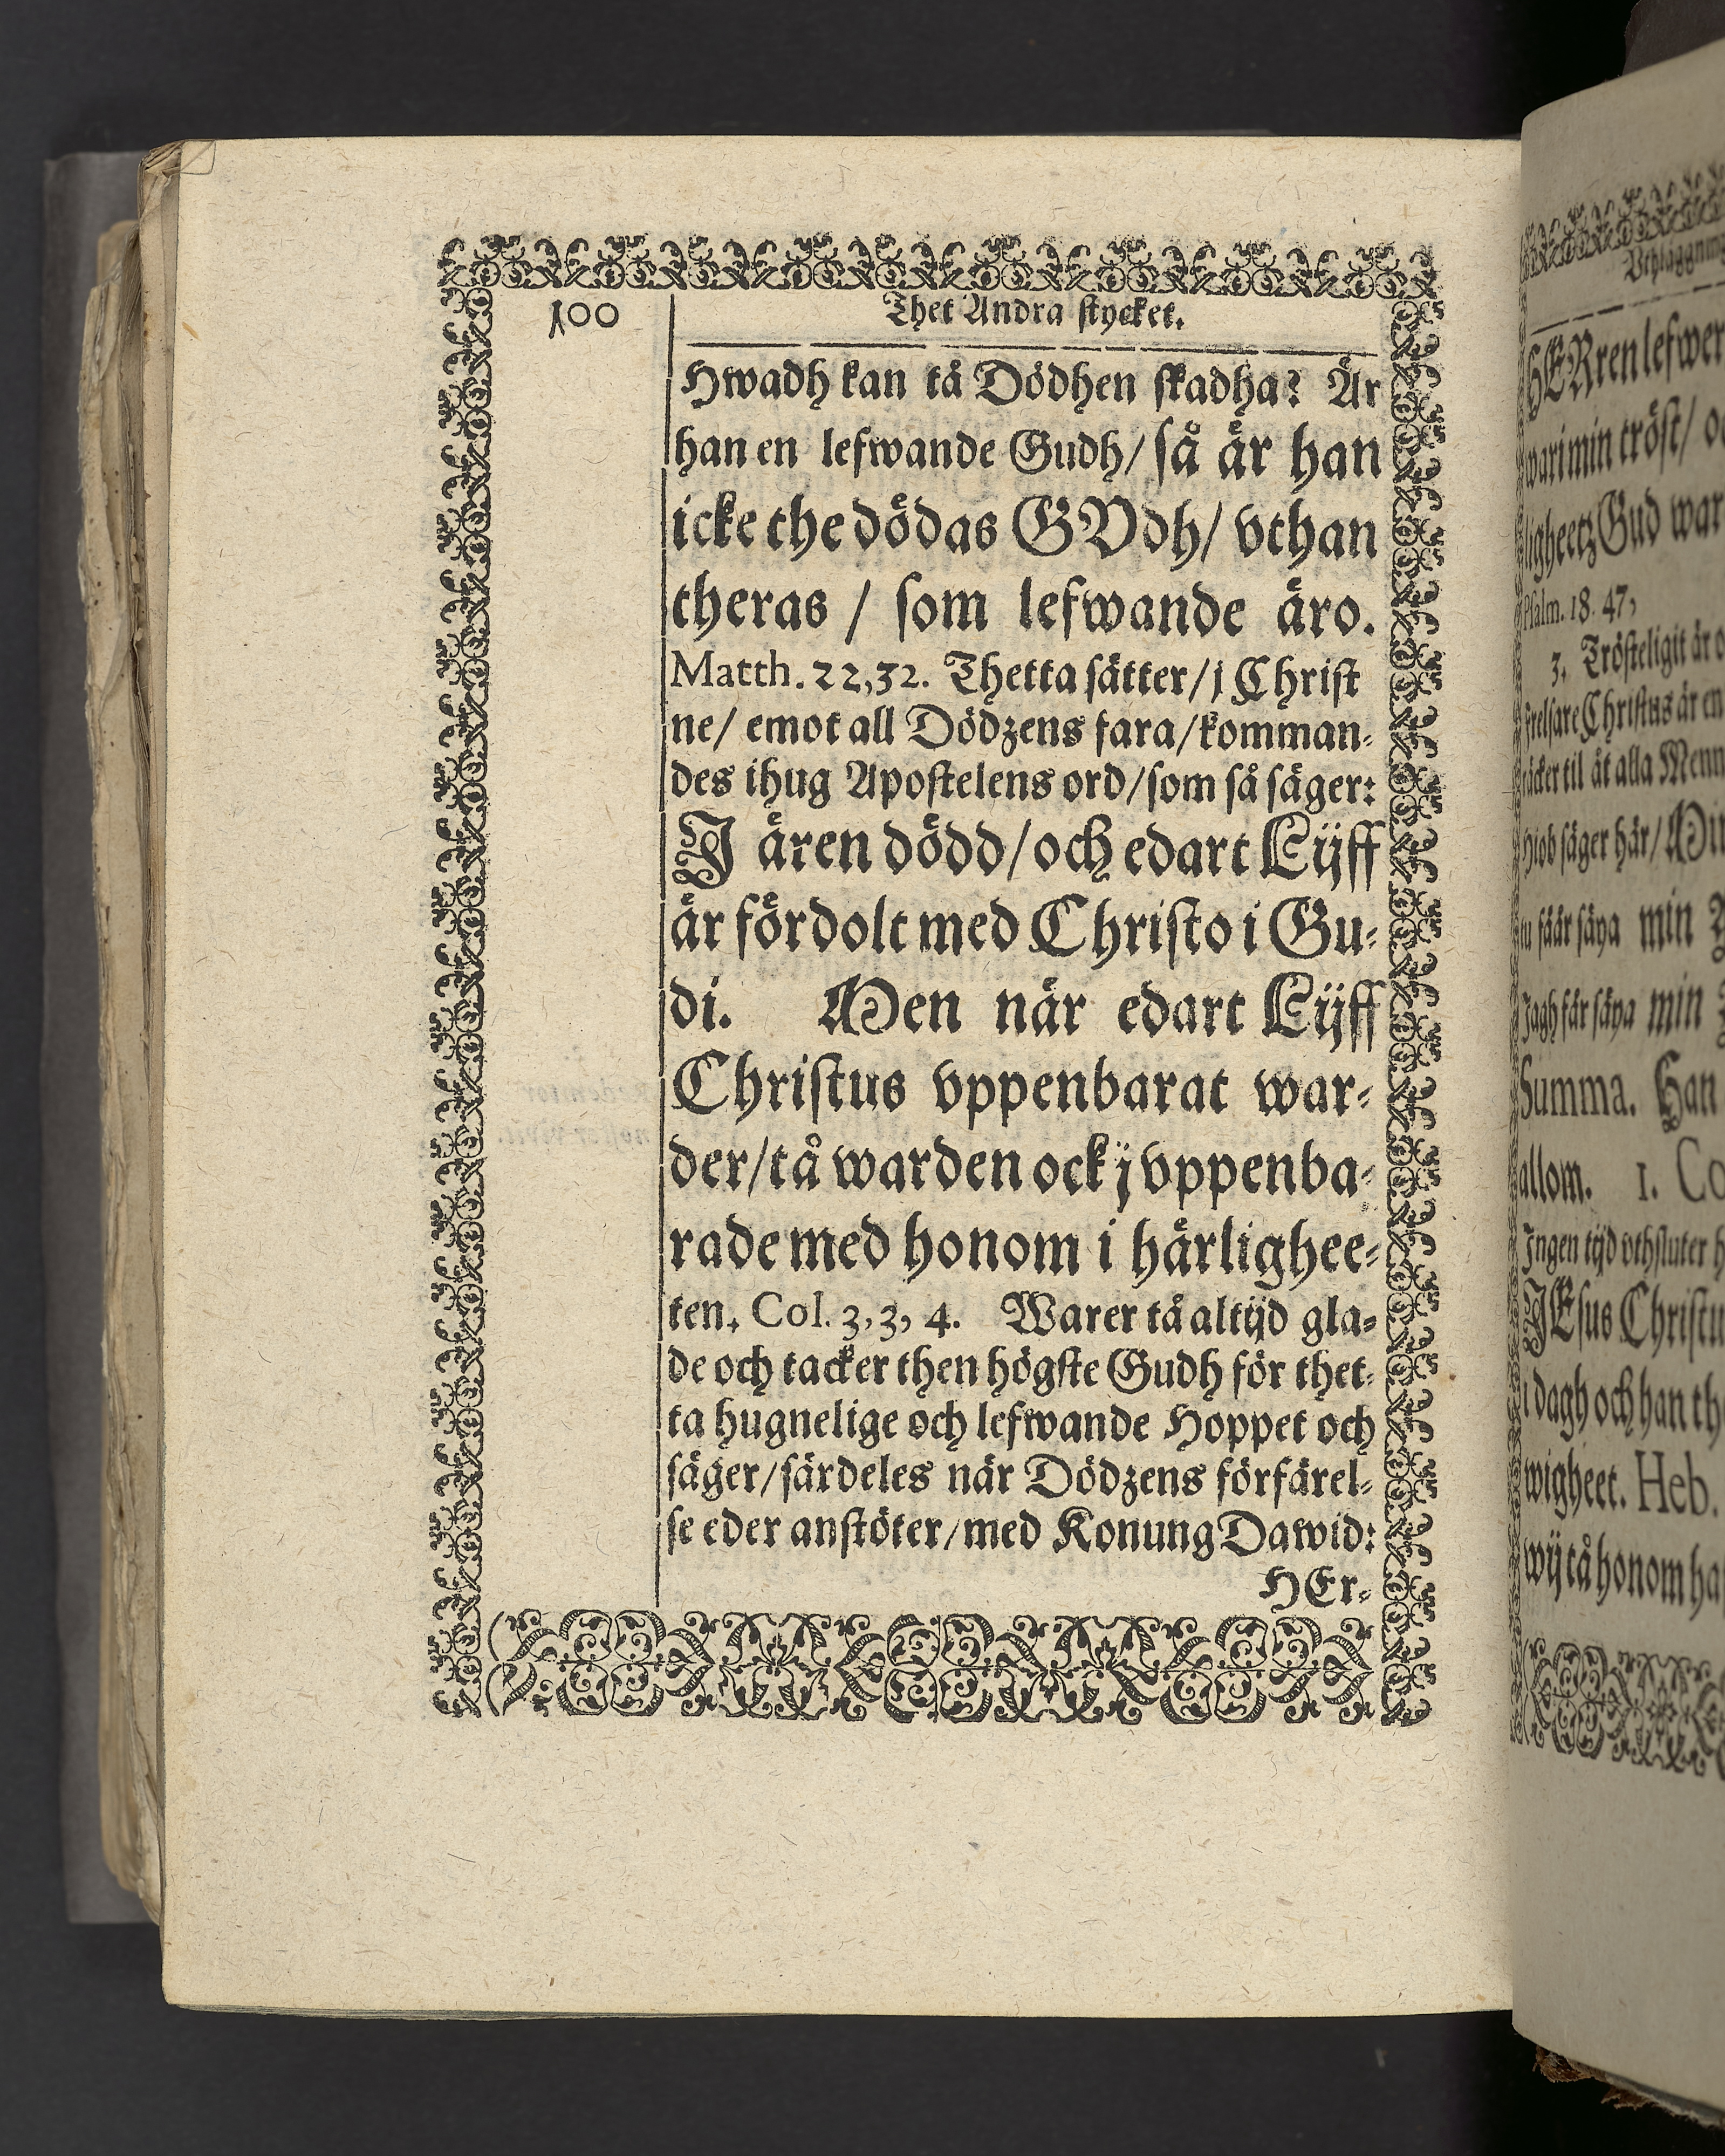 100
Thet Andra stycket.
Hwadh kan tå Dödhen skadha? Är
han en lefwande Gudh/ så är han
icke the dödas GVdh/ vthan
theras / som lefwande äro.
Matth. 22,32. Thetta sätter/ j Christ
ne/ emot all Dödzens fara/ komman-
des ihug Apostelens ord/ som så säger:
J ären dödd/ och edart Lijff
är fördolt med Christo i Gu-
di. Men när edart Lijff
Christus vppenbarat war-
der/ tå warden ock j vppenba-
rade med honom i härlighee-
ten. Col. 3, 3, 4. Warer tå altijd gla-
de och tacker then högste Gudh för thet-
ta hugnelige och lefwande Hoppet och
säger/ särdeles när Dödzens förfärel-
se eder anstöter/ med Konung Dawid:
HEr-
HERren lefwer
min tröst/
Gud war
Psalm. 18. 47,
3. Trösteligit är
Christus är en
til åt alla Menn
säger här/ Min
säya min
Jagh får säya min
Summa. Han
allom. 1. Co
Ingen tijd vthsluter
JEsus Christu
i dagh och han th
wigheet. Heb.
wij tå honom ha